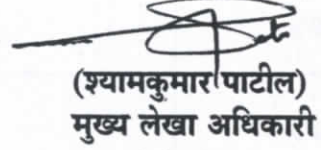 (श्यामकुमार पाटील)
मुख्य लेखा अधिकारी